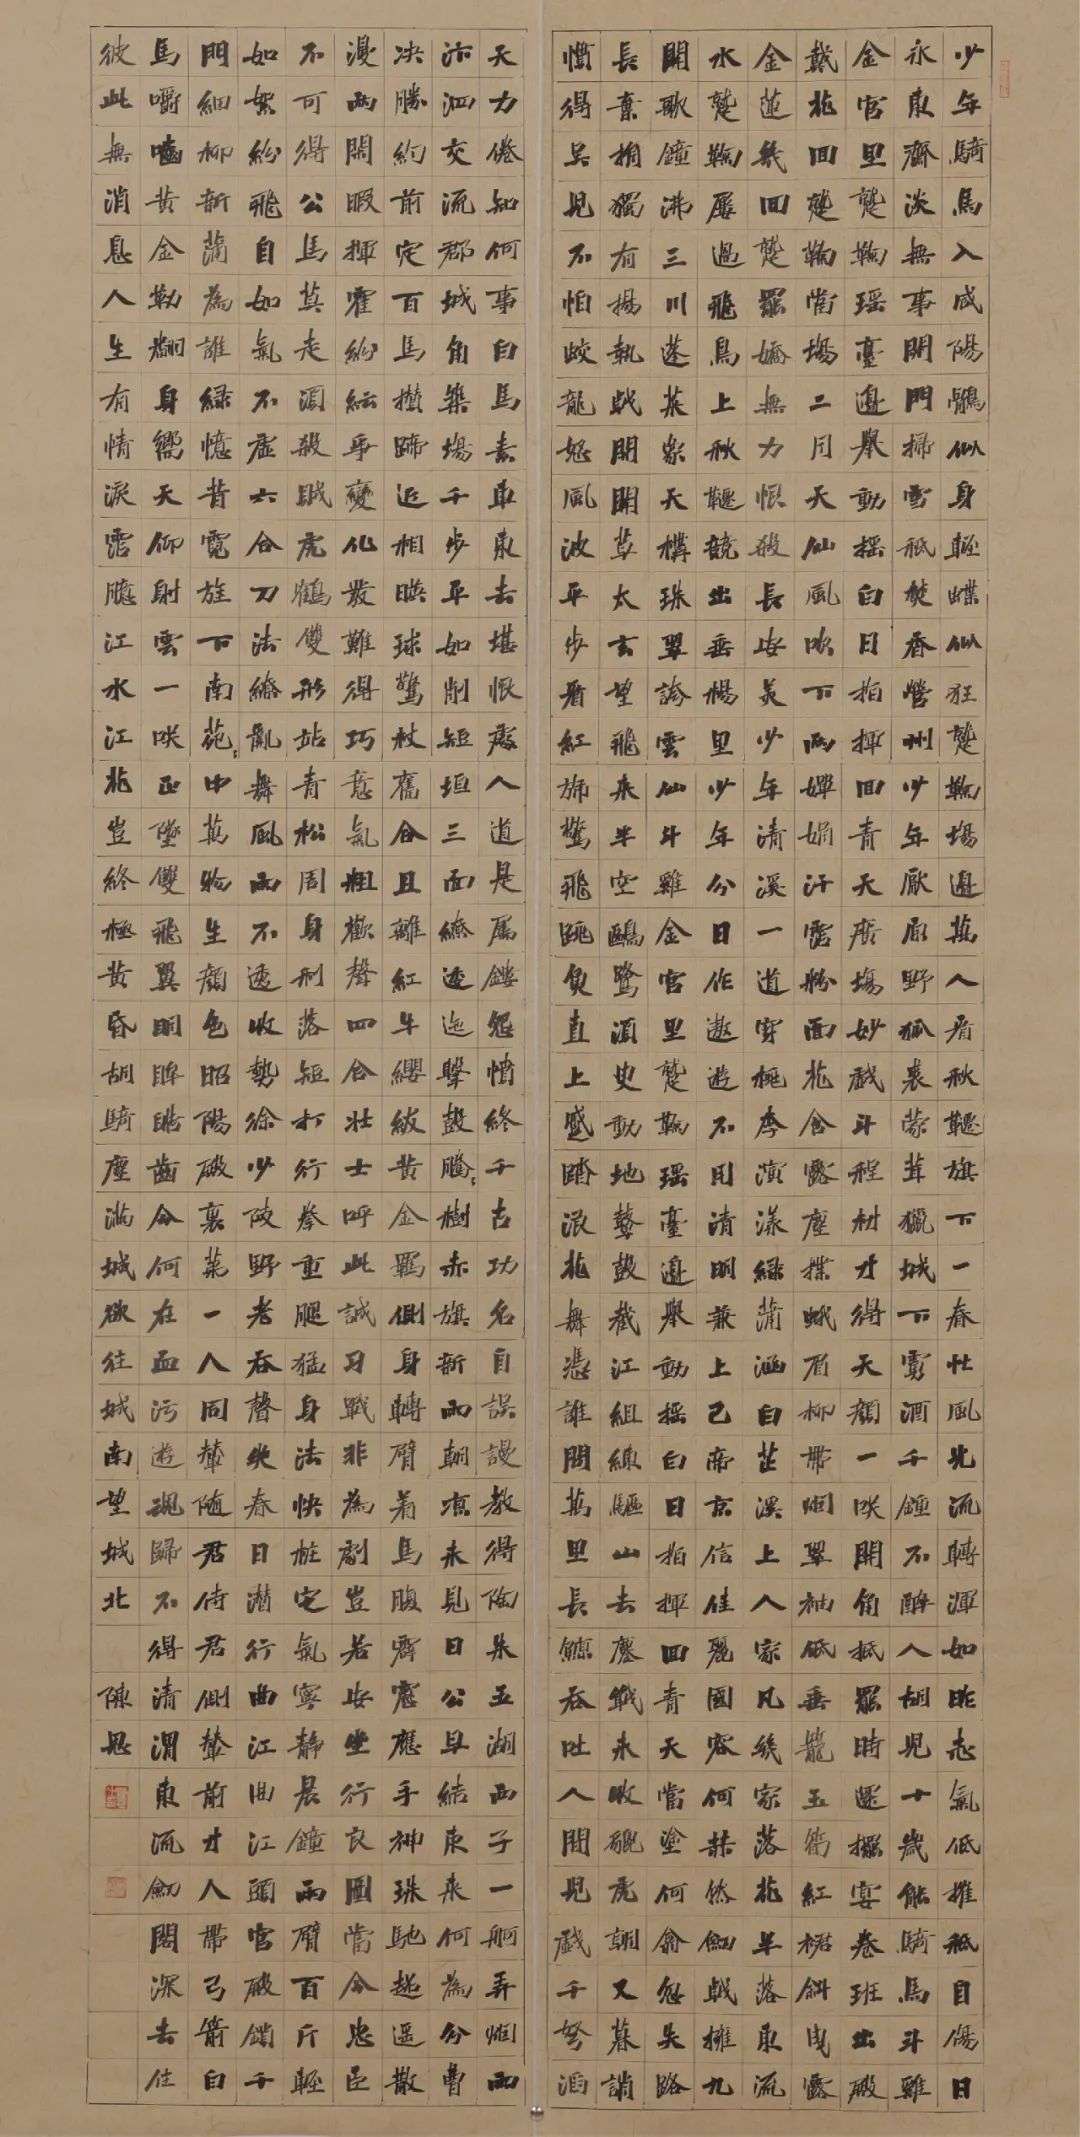 少年騎馬入咸陽鶻似身輕蝶似狂蹵鞠場邊萬人看秋韆旗下一春忙風光流轉渾如昨志氣低摧秖自傷日
永東齋淡無事閉門掃雪秖焚香營州少年厭原野狐裘蒙茸獵城下虜酒千鍾不醉人胡兒十歲能騎馬斗雞
金宮里蹵鞠瑤臺邊舉動搖白日指揮回青天廣場妙戲斗程材才得天顏一咲開角抵罷時還擺宴卷班出殿
戴花回蹵鞠當場二月天仙風吹下兩嬋娟汗霑粉面花含露塵撲蛾眉柳帶煙翠袖低垂籠玉筍紅裙斜曳露
金蓮幾回蹵罷嬌無力恨殺長安美少年清溪一道穿桃李演漾綠蒲涵白芷溪上人家凡幾家落花半落東流
水蹵鞠屢過飛鳥上秋韆競出垂楊里少年分日作遨遊不用清明兼上巳帝京信佳麗國容何赫然劍戟擁九
關歌鐘沸三川蓬萊象天構珠翠誇雲仙斗雞金宮里蹵鞠瑤臺邊舉動搖白日指揮回青天當塗何翕忽失路
長棄捐獨有揚執戟閉關草太玄望飛來半空鷗鷺須臾動地鼙鼓截江組練驅山去鏖戰未收貔虎朝又暮誚
慣得吳兒不怕蛟龍怒風波平步看紅旆驚飛跳魚直上蹙踏浪花舞憑誰問萬里長鯨吞吐人間兒戲千弩酒
天力倦知何事白馬素車東去堪恨處人道是屬鏤怨憤終千古功名自誤謾教得陶朱五湖西子一舸弄煙雨
汴泗交流郡城角築場千步平如削短垣三面繚逶迤擊鼓騰〻樹赤旗新雨朝涼未見日公早結束來何為分曹
決勝約前定百馬攢蹄近相映球驚杖奮合且離紅牛纓紱黃金羈側身轉臂着馬腹霹靂應手神珠馳超遙散
漫兩閑暇揮霍紛紜爭變化發難得巧意氣粗歡聲四合壯士呼此誠習戰非為劇豈若安坐行良圖當今忠臣
不可得公馬莫走須殺賊虎鶴雙形站青松周身刑落短打行拳重腿猛身法快樁定氣寧靜晨鐘兩臂百斤輕
如絮紛飛自如氣不虛六合刀法繚亂舞風雨不透收勢徐少陵野老吞聲哭春日潛行曲江曲江頭宮殿鎖千
門細柳新蒲為誰綠憶昔霓旌下南苑〻中萬物生顏色昭陽殿裏第一人同輦隨君侍君側輦前才人帶弓箭白
馬嚼嚙黃金勒翻身嚮天仰射雲一咲正墜雙飛翼明眸皓齒今何在血污遊魂歸不得清渭東流劍閣深去住
彼此無消息人生有情淚霑臆江水江花豈終極黃昏胡騎塵滿城欲往城南望城北 陳